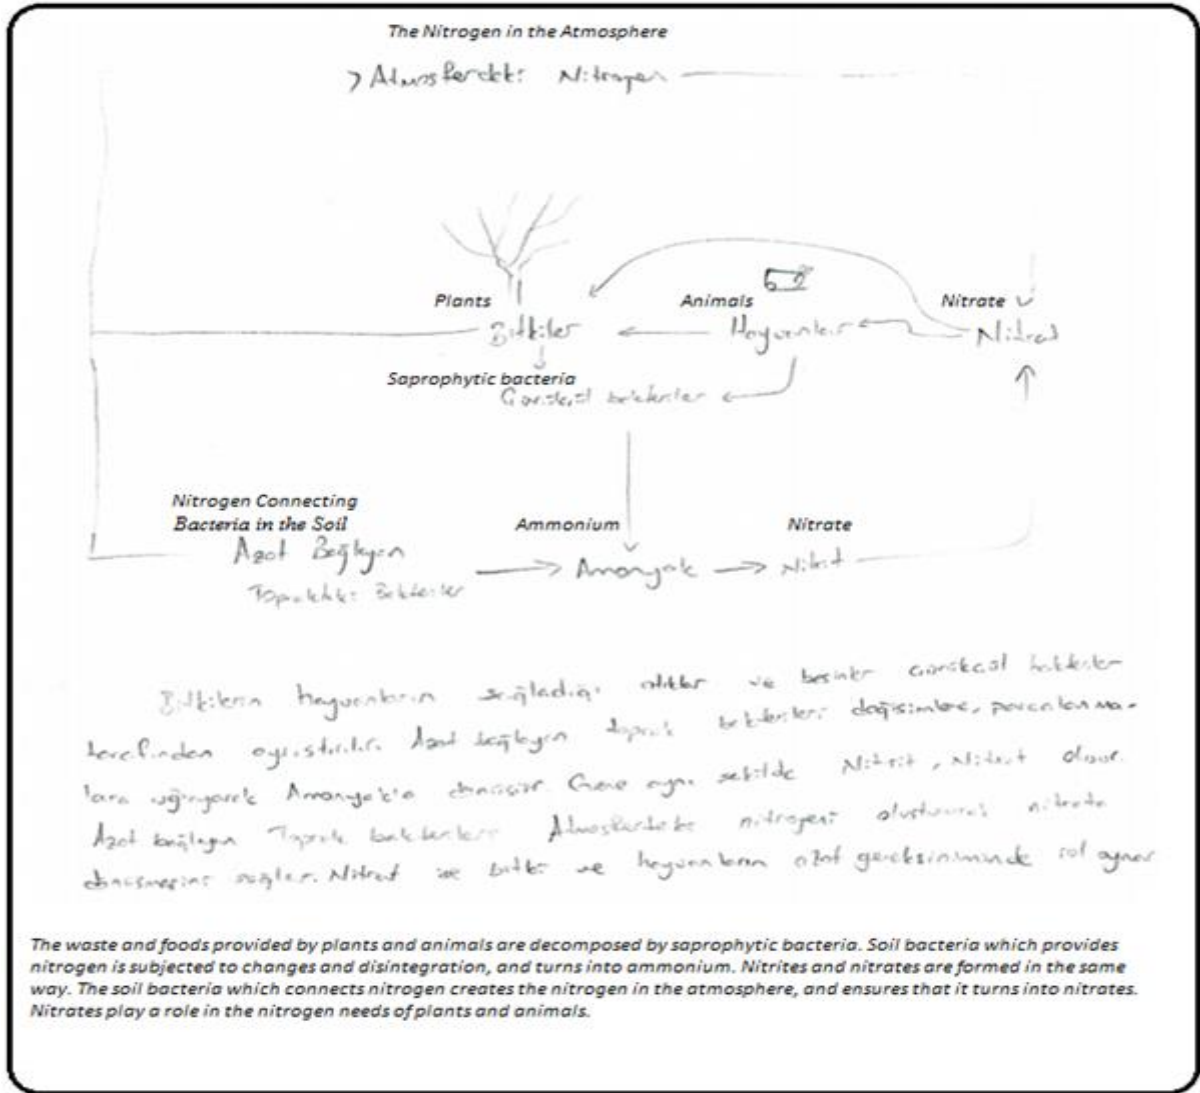 The Nitrogen in the Atmosphere
Atmosferdeki Nitrogen
Plants
Animals
Nitrate
Bitkiler
Hayvanlar
Nitrat
Saprophytic bacteria
bakteriler
Nitrogen Connecting
Bacteria in the Soil
Ammonium
Nitrate
Azot Bağlayan
Amonyak
Nitrit
Topraktaki Bakteriler
Bitkilerin hayvanların sağladığı atıklar ve besinler bakteriler
tarafından ayrıştırılır. Azot bağlayan toprak bakterileri
Amonyak'a Gene aynı şekilde Nitrit, Nitrat oluşur.
Azot bağlayan Toprak bakterileri Atmosferdeki nitrogeni oluşturarak nitrata
sağlar. Nitrat ise bitki ve hayvanların azot gereksiniminde rol oynar
The waste and foods provided by plants and animals are decomposed by saprophytic bacteria. Soil bacteria which provides
nitrogen is subjected to changes and disintegration, and turns into ammonium. Nitrites and nitrates are formed in the same
way. The soil bacteria which connects nitrogen creates the nitrogen in the atmosphere, and ensures that it turns into nitrates.
Nitrates play a role in the nitrogen needs of plants and animals.